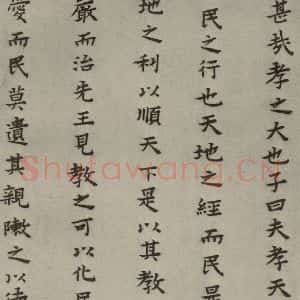 甚哉孝之大也子曰夫孝天
民之行也天地之經而民是
地之利以順天下是以其教
嚴而治先王見教之可以化民
愛而民莫遺其親敶之以
Shufawang.CN